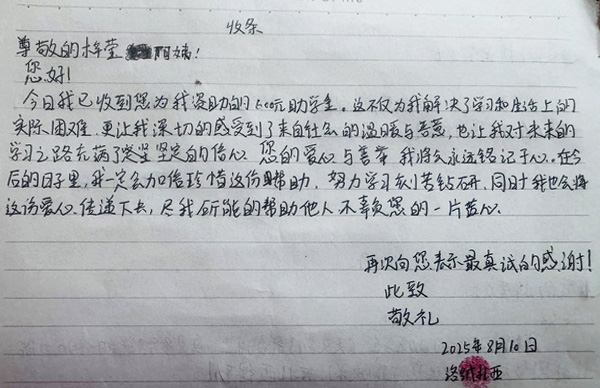 收条
尊敬的梓莹阿姨!
您好!
今日我已收到您为我资助的600元助学金。这不仅为我解决了学习和生活上的
实际困难.更让我深切的感受到了来自社会的温暖与善意,也让我对未来的
学习之路充满了坚定的信心.您的爱心与善举,我将永远铭记于心。在今
后的日子里,我一定会加倍珍惜这份帮助,努力学习刻苦钻研,同时我也会将
这份爱心.传递下去,尽我所能的帮助他人,不辜负您的一片苦心。
再次向您表示最真诚的感谢!
此致
敬礼
2025年8月10日
洛绒扎西